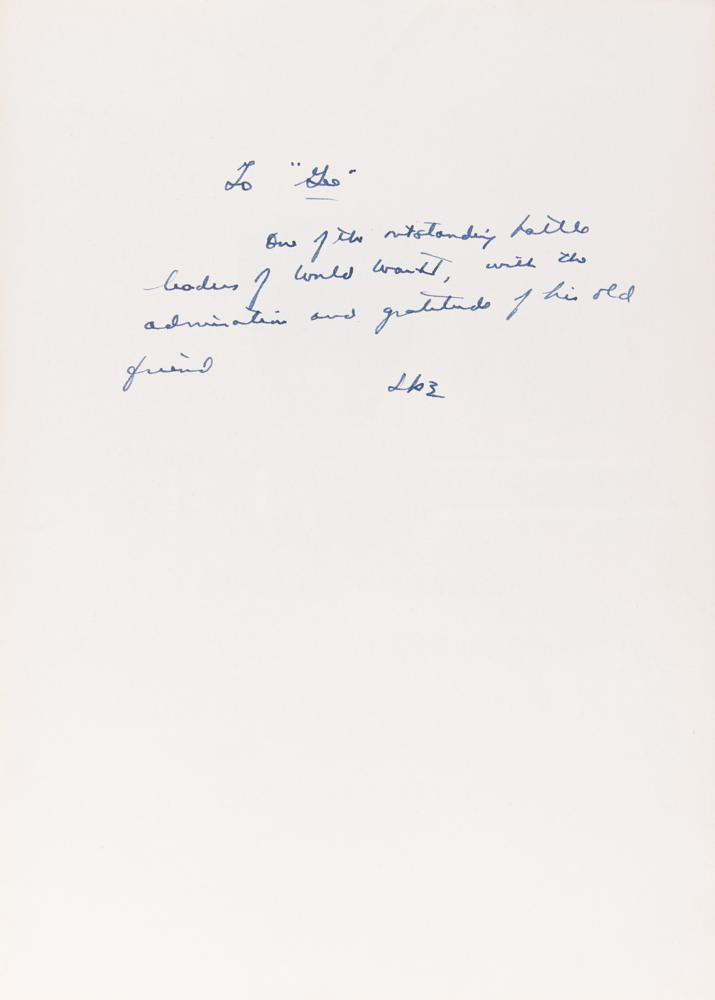 To "Gee"
One of the outstanding battle
leaders of World War II, with the
admiration and gratitude of his old
friend
Ike